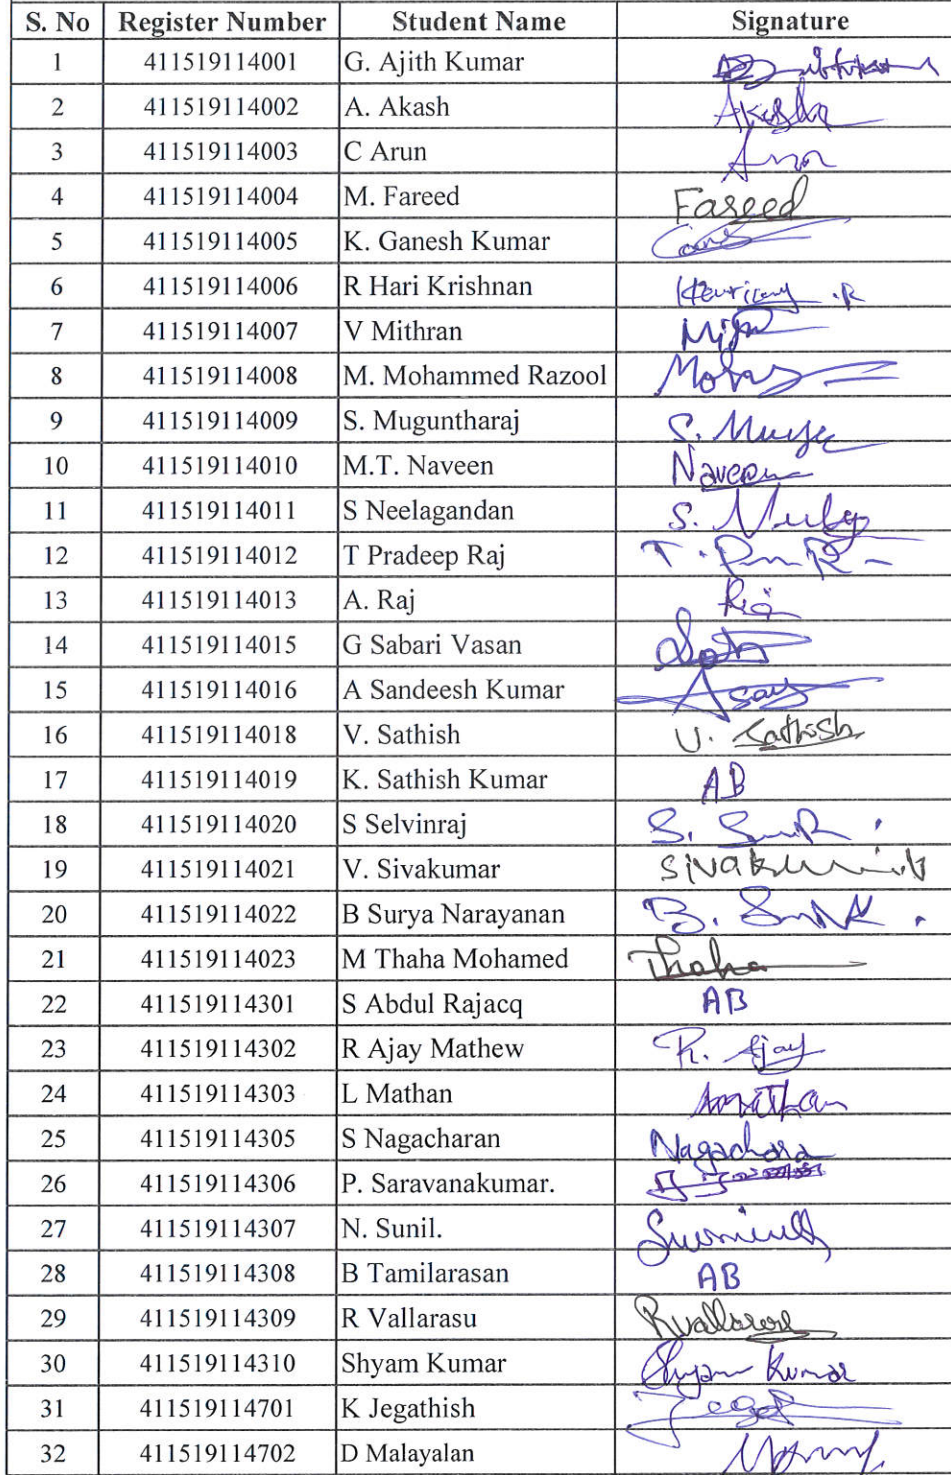 S. No Register Number Student Name Signature
1 411519114001 G. Ajith Kumar
2 411519114002 A. Akash Akash
3 411519114003 C Arun Arun
4 411519114004 M. Fareed Fareed
5 411519114005 K. Ganesh Kumar
6 411519114006 R Hari Krishnan
7 411519114007 V Mithran
8 411519114008 M. Mohammed Razool
9 411519114009 S. Muguntharaj S.
10 411519114010 M.T. Naveen Naveen
11 411519114011 S Neelagandan S.
12 411519114012 T Pradeep Raj T.
13 411519114013 A. Raj
14 411519114015 G Sabari Vasan
15 411519114016 A Sandeesh Kumar
16 411519114018 V. Sathish V. Sathish
17 411519114019 K. Sathish Kumar AB
18 411519114020 S Selvinraj S.
19 411519114021 V. Sivakumar
20 411519114022 B Surya Narayanan B.
21 411519114023 M Thaha Mohamed Thaha
22 411519114301 S Abdul Rajacq AB
23 411519114302 R Ajay Mathew R. Ajay
24 411519114303 L Mathan
25 411519114305 S Nagacharan Nagachara
26 411519114306 P. Saravanakumar.
27 411519114307 N. Sunil.
28 411519114308 B Tamilarasan AB
29 411519114309 R Vallarasu
30 411519114310 Shyam Kumar Shyam Kumar
31 411519114701 K Jegathish
32 411519114702 D Malayalan